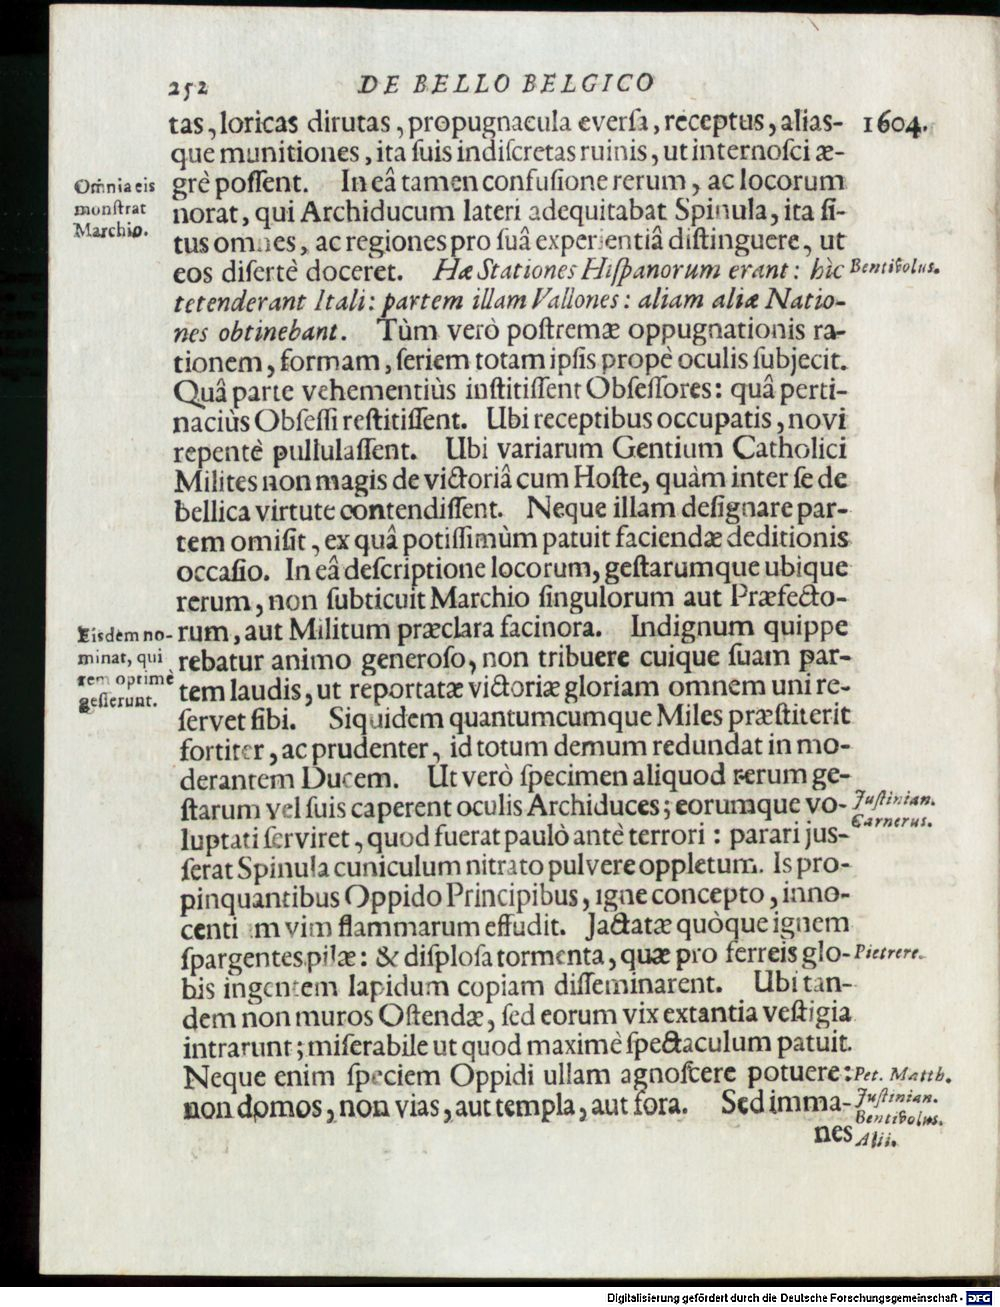 252 DE BELLO BELGICO
tas, loricas dirutas, propugnacula eversa, receptus, alias- 1604.
que munitiones, ita suis indiscretas ruinis, ut internosci æ-
grè possent. In eâ tamen confusione rerum, ac locorum
norat, qui Archiducum lateri adequitabat Spinula, ita si-
tus omnes, ac regiones pro suâ experientiâ distinguere, ut
eos disertè doceret. Hæ Stationes Hispanorum erant: hìc
tetenderant Itali: partem illam Vallones: aliam aliæ Natio-
nes obtinebant. Tùm verò postremæ oppugnationis ra-
tionem, formam, seriem totam ipsis propè oculis subjecit.
Quâ parte vehementiùs institissent Obsessores: quâ perti-
naciùs Obsessi restitissent. Ubi receptibus occupatis, novi
repentè pullulassent. Ubi variarum Gentium Catholici
Milites non magis de victoriâ cum Hoste, quàm inter se de
bellica virtute contendissent. Neque illam designare par-
tem omisit, ex quâ potissimùm patuit faciendæ deditionis
occasio. In eâ descriptione locorum, gestarumque ubique
rerum, non subticuit Marchio singulorum aut Præfecto-
rum, aut Militum præclara facinora. Indignum quippe
rebatur animo generoso, non tribuere cuique suam par-
tem laudis, ut reportatæ victoriæ gloriam omnem uni re-
servet sibi. Siquidem quantumcumque Miles præstiterit
fortiter, ac prudenter, id totum demum redundat in mo-
derantem Ducem. Ut verò specimen aliquod rerum ge-
starum vel suis caperent oculis Archiduces; eorumque vo-
luptati serviret, quod fuerat paulò antè terrori: parari jus-
serat Spinula cuniculum nitrato pulvere oppletum. Is pro-
pinquantibus Oppido Principibus, igne concepto, inno-
centiam vim flammarum effudit. Jactatæ quòque ignem
spargentes pilæ: & displosa tormenta, quæ pro ferreis glo-
bis ingentem lapidum copiam disseminarent. Ubi tan-
dem non muros Ostendæ, sed eorum vix extantia vestigia
intrarunt; miserabile ut quod maximè spectaculum patuit.
Neque enim speciem Oppidi ullam agnoscere potuere:
non domos, non vias, aut templa, aut fora. Sed imma-
nes
Om̃nia eis
monstrat
Marchio.
Eisdem no-
minat, qui
rem optimè
gesserunt.
Bentivolus.
Justinian.
Carnerus.
Pietrere.
Pet. Matth.
Justinian.
Bentivolus.
Alii.
Digitalisierung gefördert durch die Deutsche Forschungsgemeinschaft - DFG